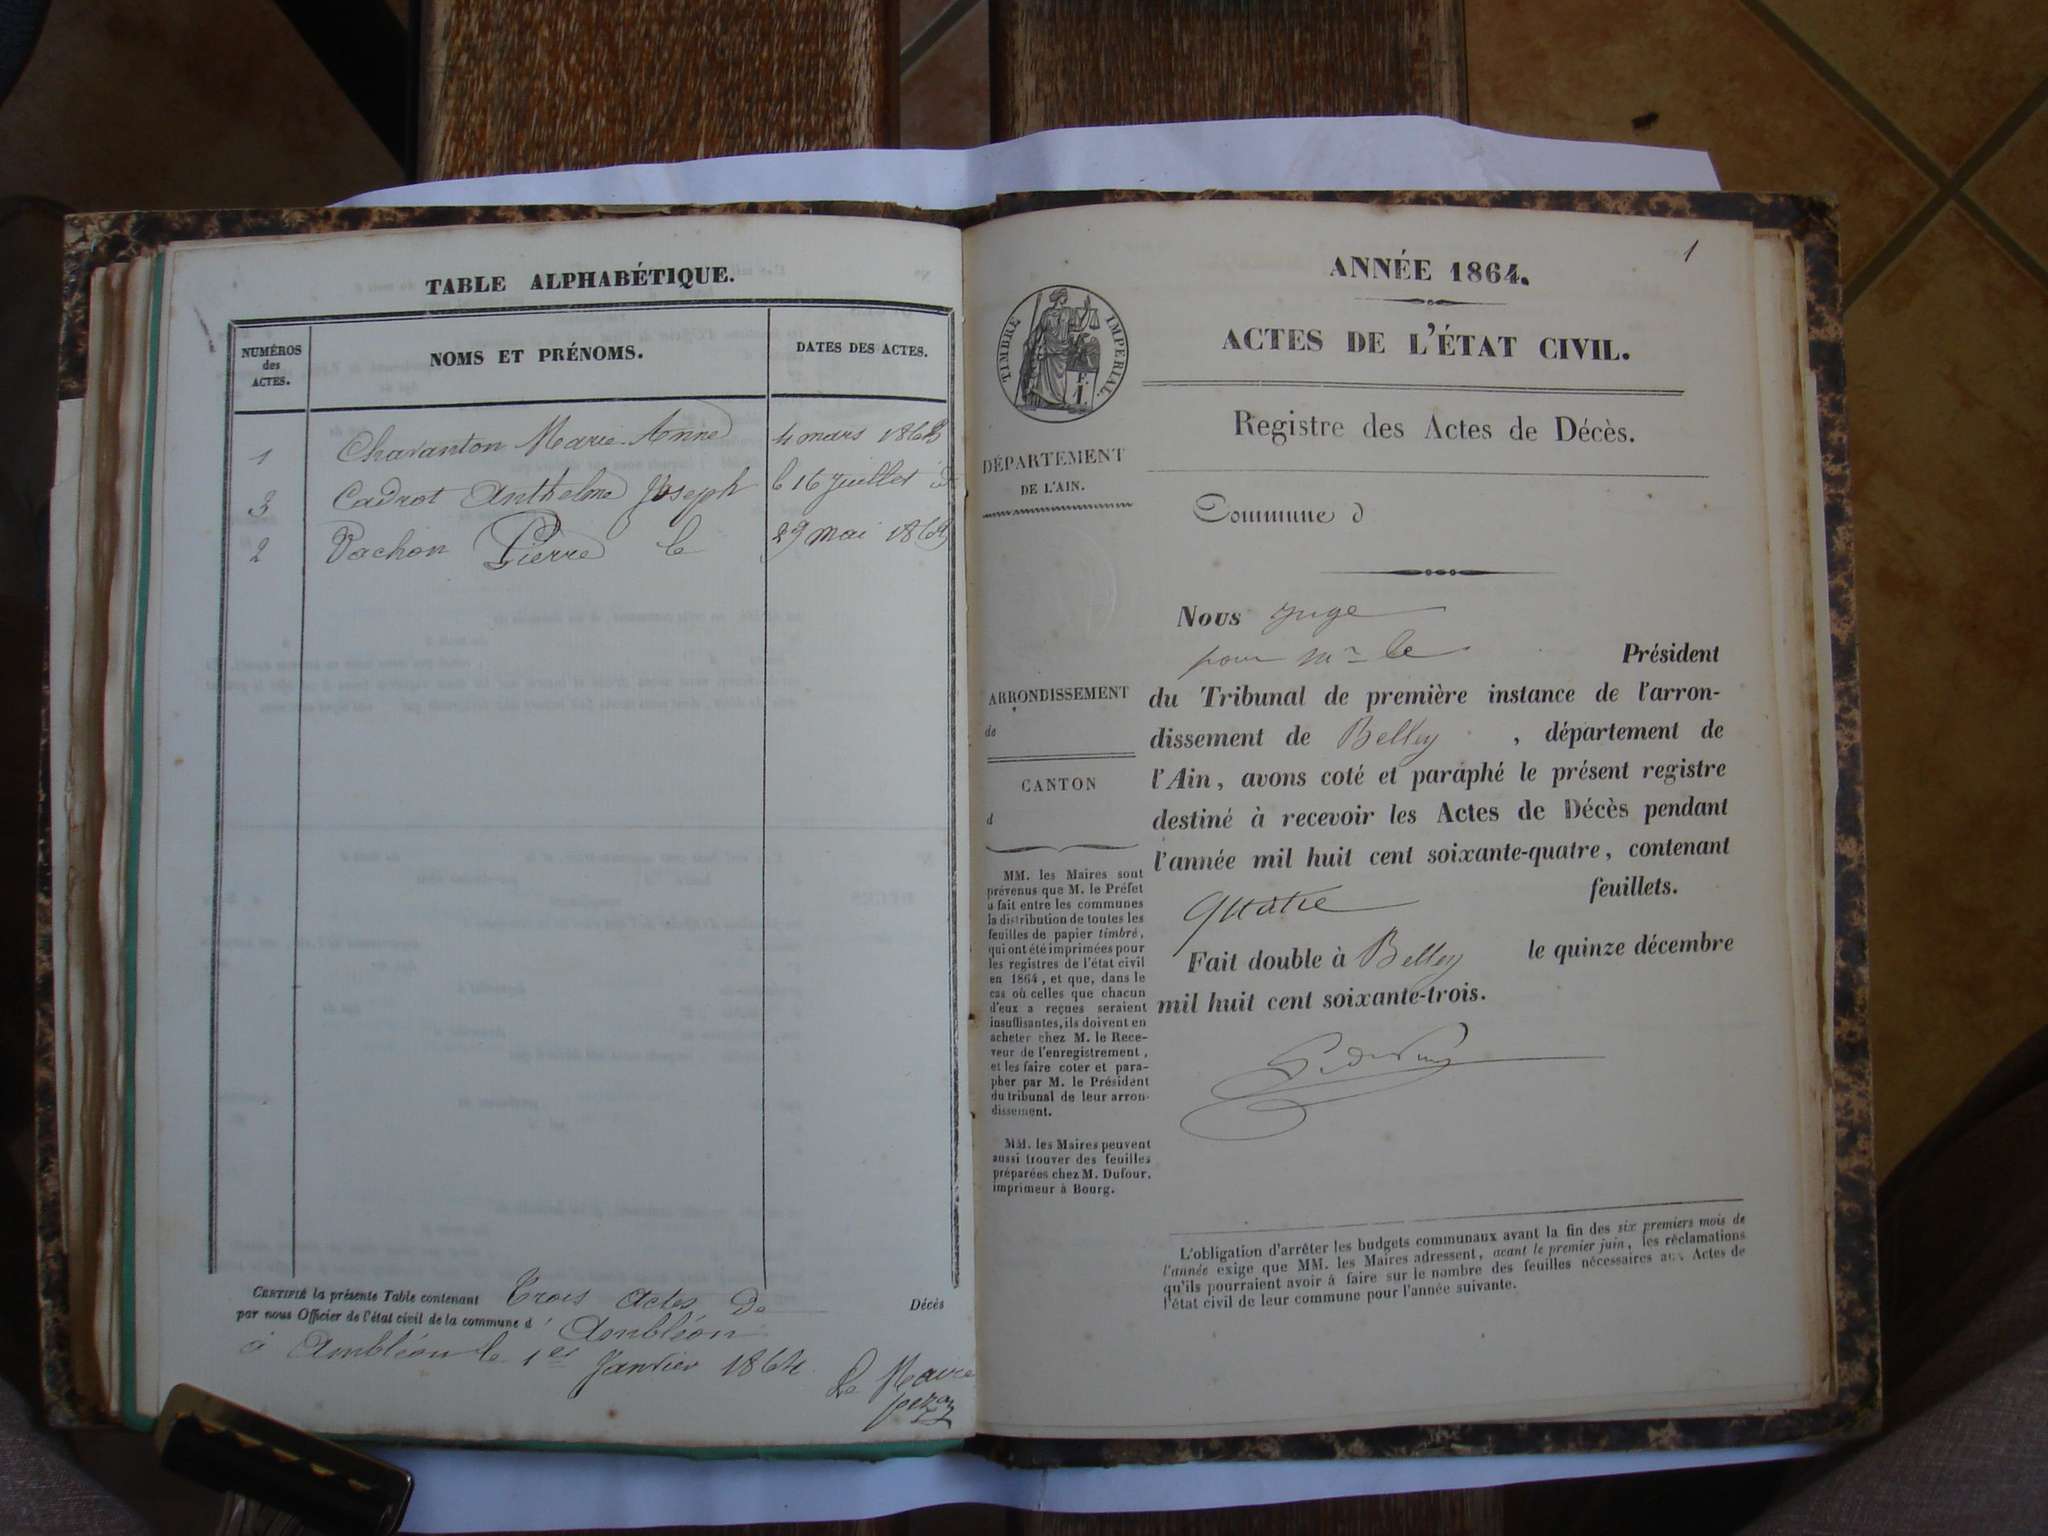 TABLE ALPHABÉTIQUE.
NUMÉROS
des
ACTES.
NOMS ET PRÉNOMS.
DATES DES ACTES.
1 Chavanton Marie Anne 4 mars
3 Cadrot Anthelme Joseph le 16 juillet
2 Vachon Pierre le 29 mai
CERTIFIÉ la présente Table contenant trois actes de Décès
par nous Officier de l'état civil de la commune d'Ambléon
à Ambléon le 1er Janvier 1864
Le Maire
1
ANNÉE 1864.
ACTES DE L'ÉTAT CIVIL.
Registre des Actes de Décès.
TIMBRE IMPERIAL.
F.
1.
DÉPARTEMENT
DE L'AIN.
Commune d
ARRONDISSEMENT
de
CANTON
d
MM. les Maires sont
prévenus que M. le Préfet
a fait entre les communes
la distribution de toutes les
feuilles de papier timbré,
qui ont été imprimées pour
les registres de l'état civil
en 1864, et que, dans le
cas où celles que chacun
d'eux a reçues seraient
insuffisantes, ils doivent en
acheter chez M. le Rece-
veur de l'enregistrement,
et les faire coter et para-
pher par M. le Président
du tribunal de leur arron-
dissement.
MM. les Maires peuvent
aussi trouver des feuilles
préparées chez M. Dufour,
imprimeur à Bourg.
Nous juge
pour Mr le Président
du Tribunal de première instance de l'arron-
dissement de Belley , département de
l'Ain, avons coté et paraphé le présent registre
destiné à recevoir les Actes de Décès pendant
l'année mil huit cent soixante-quatre, contenant
quatre feuillets.
Fait double à Belley le quinze décembre
mil huit cent soixante-trois.
L'obligation d'arrêter les budgets communaux avant la fin des six premiers mois de
l'année exige que MM. les Maires adressent, avant le premier juin, les réclamations
qu'ils pourraient avoir à faire sur le nombre des feuilles nécessaires aux Actes de
l'état civil de leur commune pour l'année suivante.